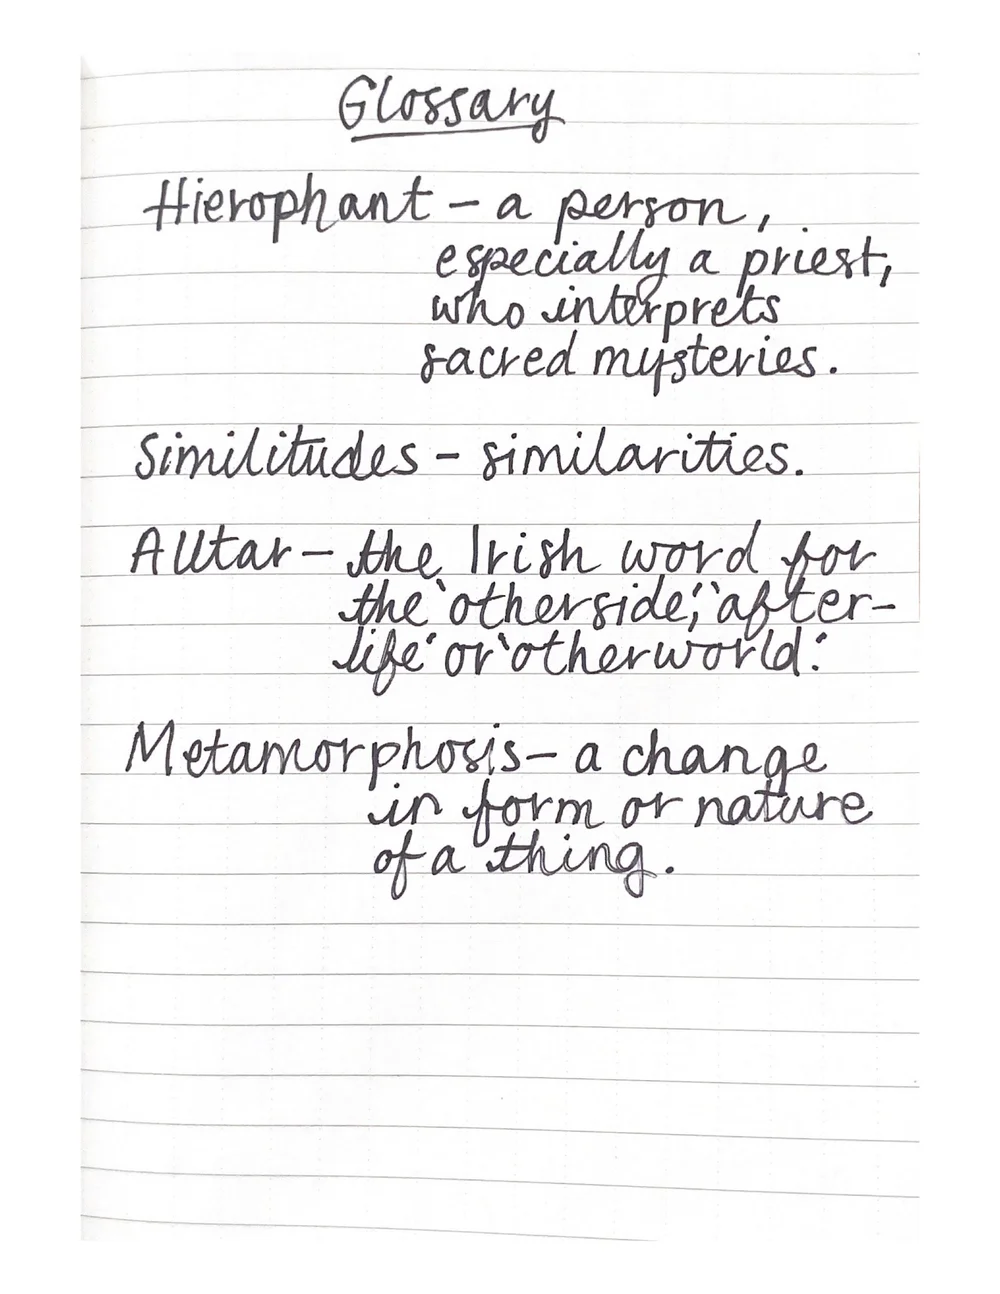 Glossary
Hierophant – a person,
especially a priest,
who interprets
sacred mysteries.
Similitudes – similarities.
Alltar – the Irish word for
the 'otherside', 'after-
life' or 'otherworld'.
Metamorphosis – a change
in form or nature
of a thing.